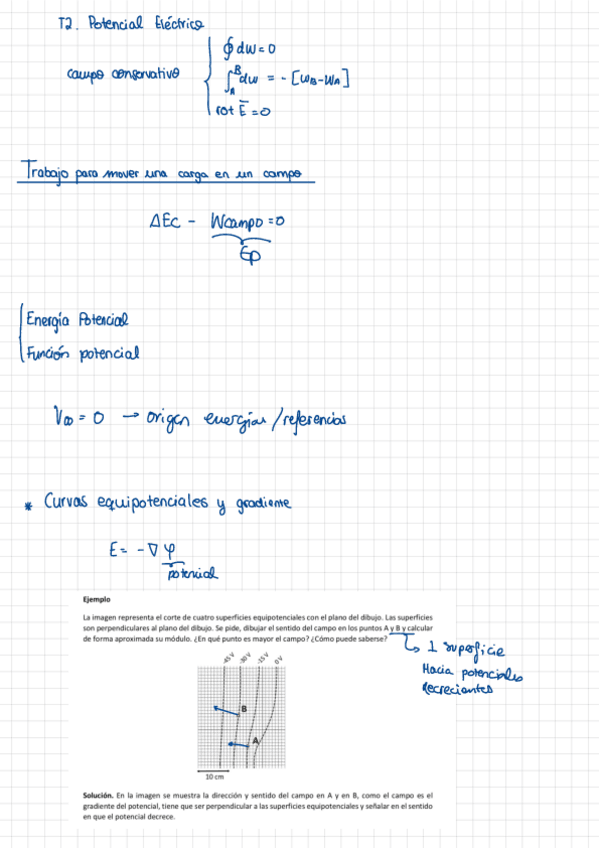 T2. Potencial Eléctrico
campo conservativo
∮ dw = 0
∫_A^B dw = - [W_B - W_A]
rot E̅ = 0
Trabajo para mover una carga en un campo
ΔEc - Wcampo = 0
Ep
Energía Potencial
Función potencial
V∞ = 0 → origen energías/referencias
* Curvas equipotenciales y gradiente
E = -∇φ
potencial
Ejemplo
La imagen representa el corte de cuatro superficies equipotenciales con el plano del dibujo. Las superficies
son perpendiculares al plano del dibujo. Se pide, dibujar el sentido del campo en los puntos A y B y calcular
de forma aproximada su módulo. ¿En qué punto es mayor el campo? ¿Cómo puede saberse?
⊥ superficie
Hacia potenciales
decrecientes
-45 V -30 V -15 V 0 V
B
A
10 cm
Solución. En la imagen se muestra la dirección y sentido del campo en A y en B, como el campo es el
gradiente del potencial, tiene que ser perpendicular a las superficies equipotenciales y señalar en el sentido
en que el potencial decrece.